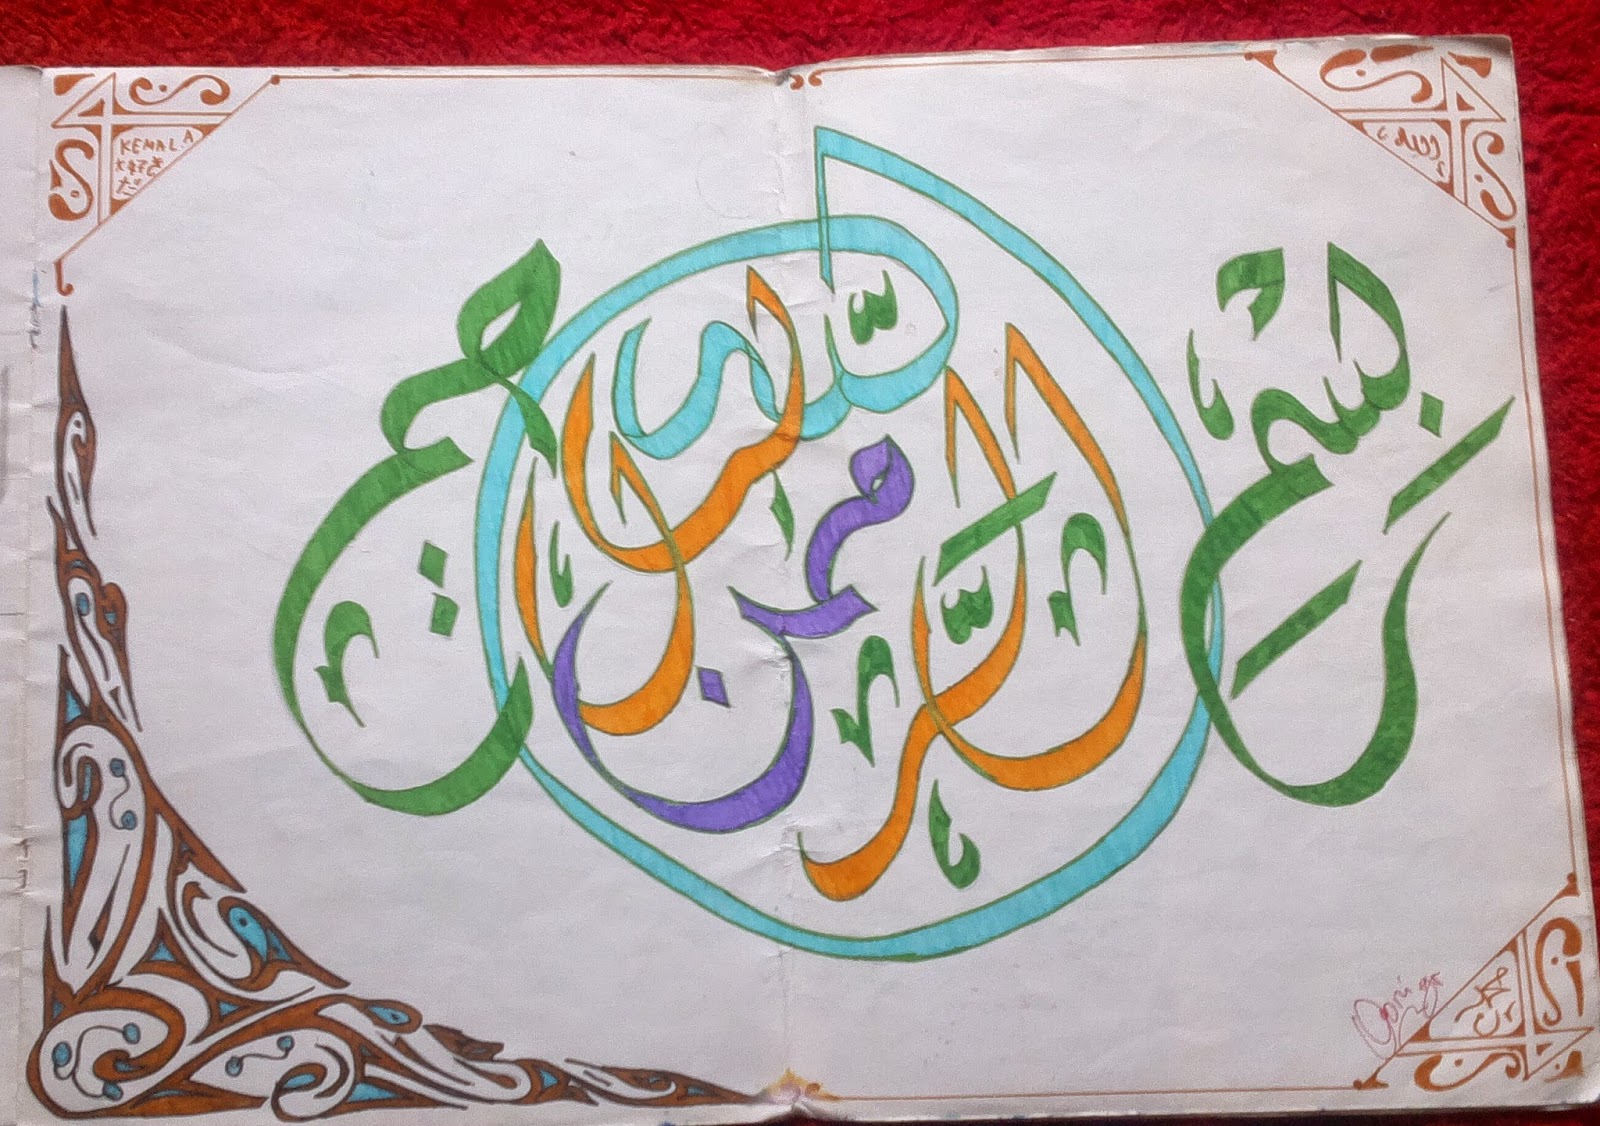 بسم الله الرحمن الرحيم
KEMALA
大好き
だ